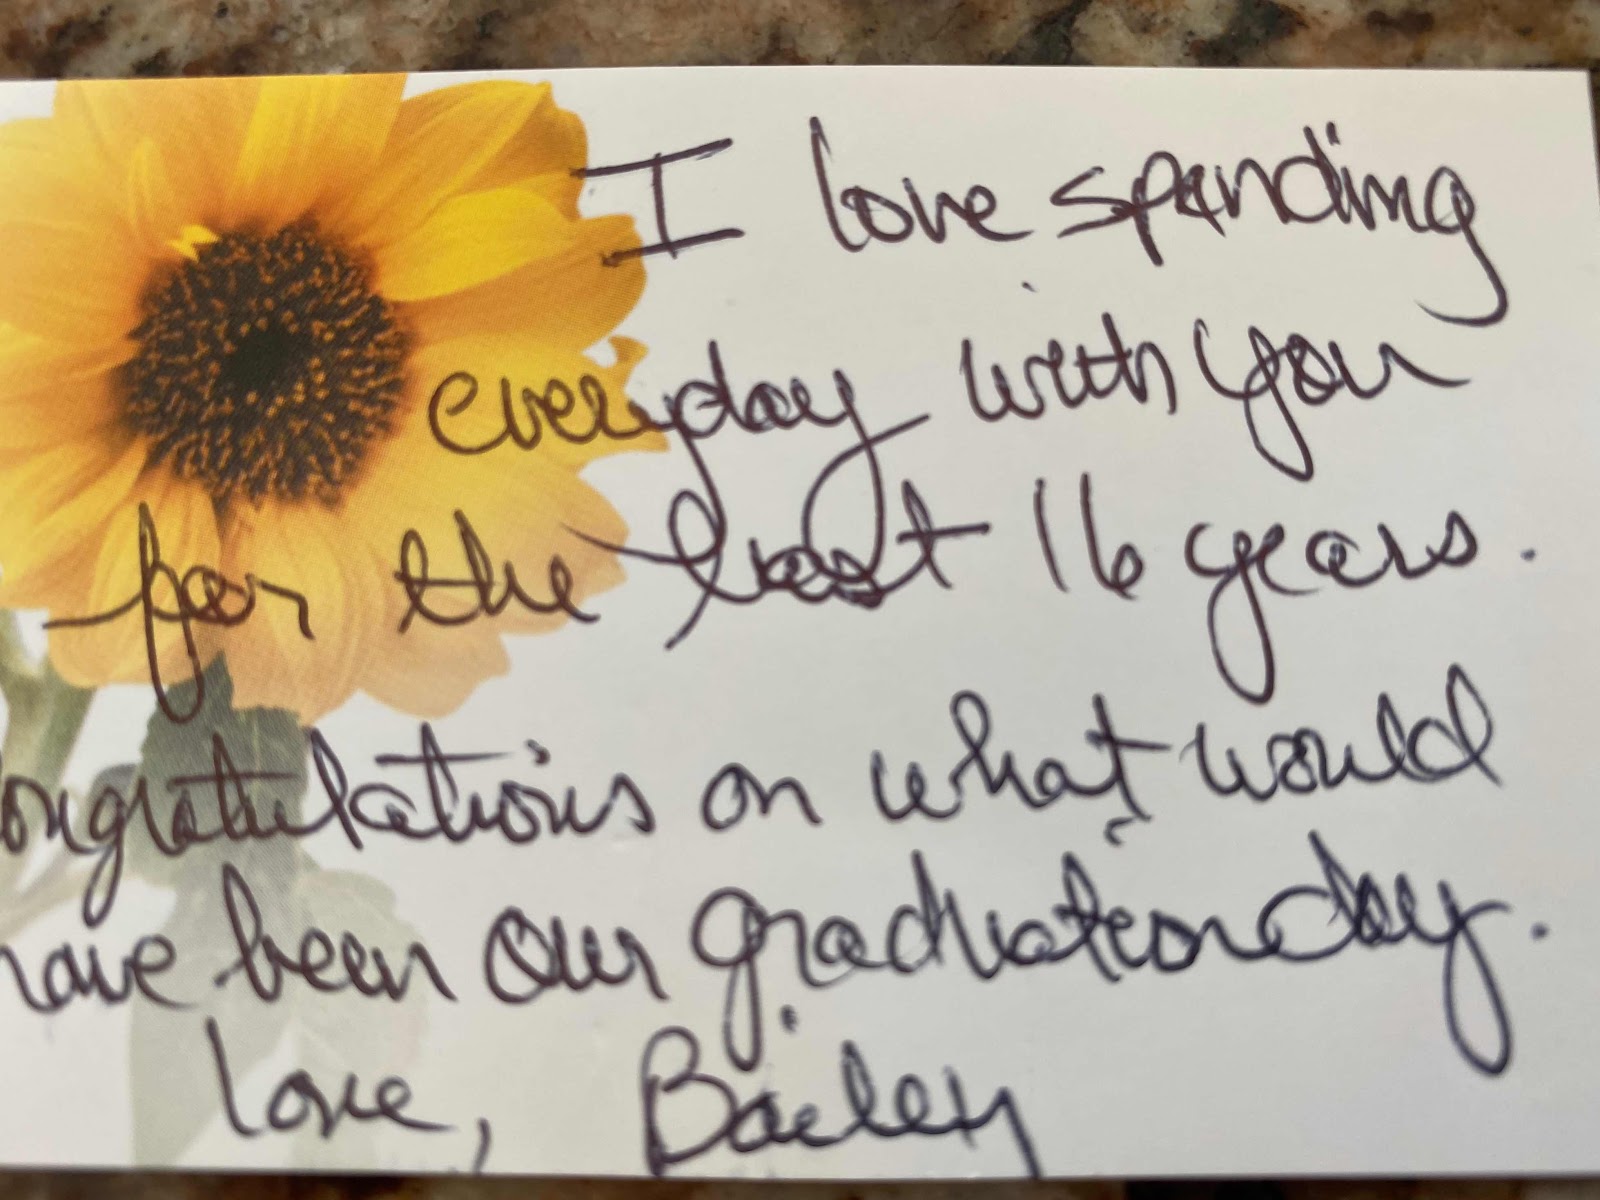 I love spending
everyday with you
for the last 16 years.
ongratulations on what would
have been our graduation day.
Love, Bailey